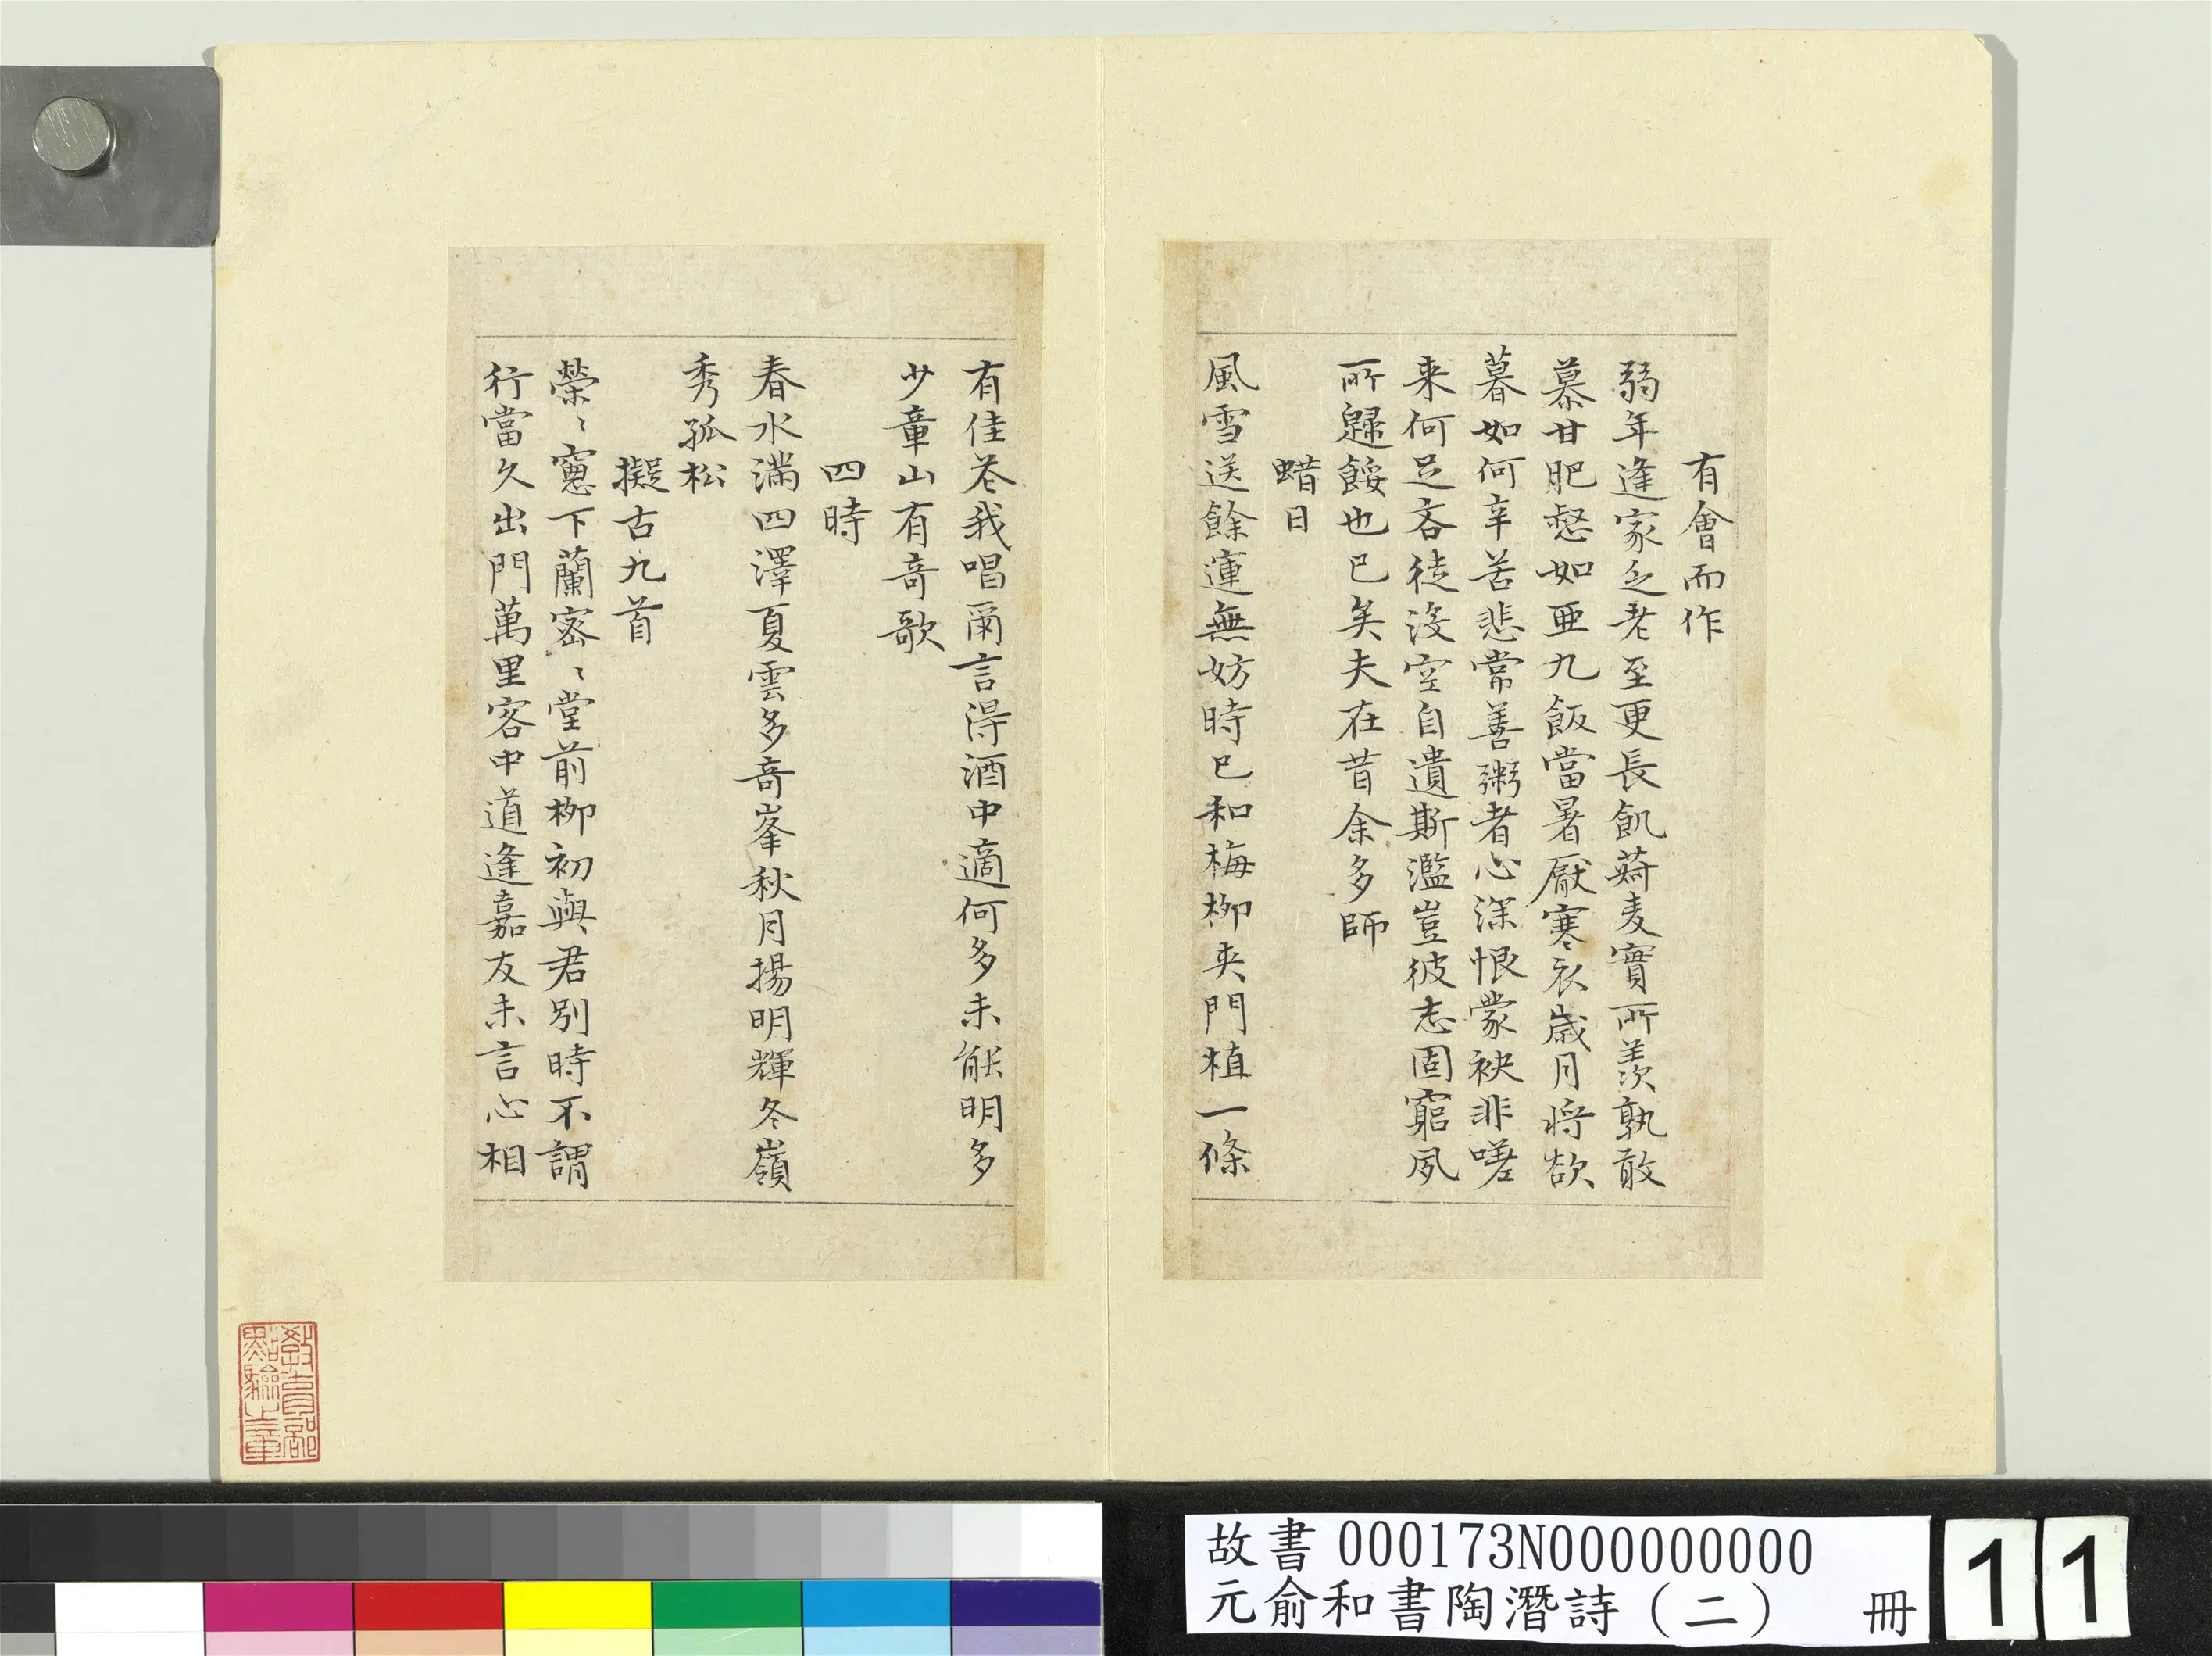 有會而作
弱年逢家乏老至更長飢菽麦實所羨孰敢
慕甘肥惄如亞九飯當暑厭寒衣歲月將欲
暮如何辛苦悲常善粥者心深恨蒙袂非嗟
来何足吝徒沒空自遺斯濫豈彼志固窮夙
所歸餒也已矣夫在昔余多師
蜡日
風雪送餘運無妨時已和梅柳夹門植一條
有佳花我唱爾言得酒中適何多未能明多
少章山有奇歌
四時
春水滿四澤夏雲多奇峯秋月揚明輝冬嶺
秀孤松
擬古九首
榮〻窻下蘭密〻堂前柳初與君别時不謂
行當久出門萬里客中道逢嘉友未言心相
教育部
點驗之章
故書000173N000000000
元俞和書陶潛詩(二) 冊
11